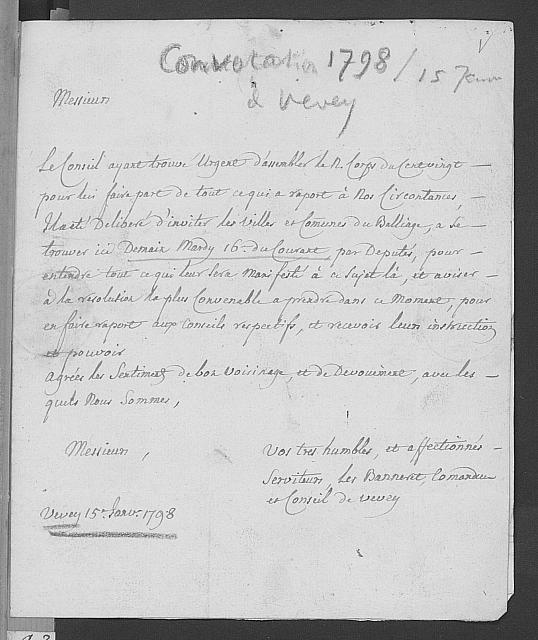 Convocation 1798 / 15 Janv
à Vevey
Messieurs
Le Conseil ayant trouvé Urgent d'assembler le N. Corps du Cent vingt —
pour lui faire part de tout ce qui a raport à Nos Circontances, —
Il a été Deliberé d'inviter les Villes et Comunes du Balliage, a se —
trouver ici Demain Mardy 16e. du Courant, par Deputés, pour —
entendre tout ce qui leur sera Manifesté à ce Sujet là, et aviser —
à la résolution la plus Convenable a prendre dans ce Moment, pour
en faire raport aux Conseils respectifs, et recevoir leurs instruction
et pouvoir
agrées les Sentimens de bon Voisinage, et de Devouement, avec les —
quels Nous Sommes,
Messieurs,
Vos tres humbles, et affectionnés —
Serviteurs, Les Banneret, Comandeur
et Conseil de Vevey
Vevey 15e. Janvr. 1798